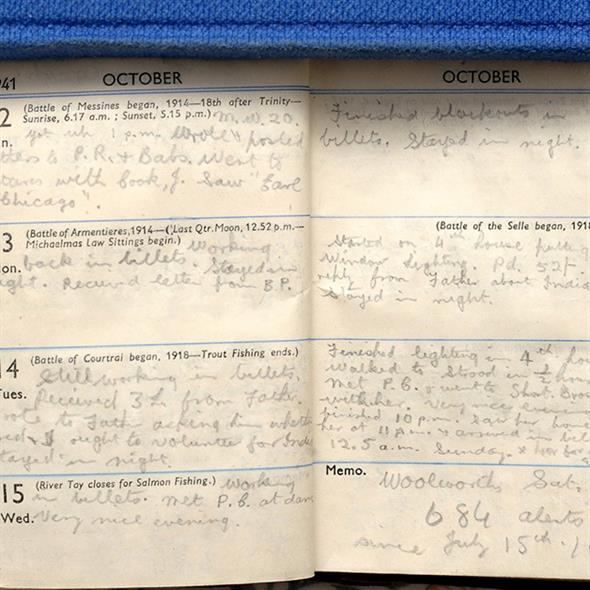 941 OCTOBER
2 (Battle of Messines began, 1914—18th after Trinity—
Sunrise, 6.17 a.m. ; Sunset, 5.15 p.m.) M.W. 20.
n. got up 1 p.m. Wrote & posted
tters to P.R. & Babs. Went to
with Cook, J. Saw "Earl
Chicago".
3 (Battle of Armentieres, 1914—(Last Qtr. Moon, 12.52 p.m.—
Michaelmas Law Sittings begin.) Working
on. back in billets. Stayed in
ght. Received letter from B.P.
14 (Battle of Courtrai began, 1918—Trout Fishing ends.)
Still working in billets.
Tues. Received 3 from Father.
rote to Father asking him whether
I ought to volunteer for Ind
stayed in night.
15 (River Tay closes for Salmon Fishing.) Working
in billets. Met P.B. at dan
Wed. Very nice evening.
OCTOBER
Finished blackouts in
billets. Stayed in night.
(Battle of the Selle began, 1918
Started on 4th house putting
Window lighting. Pd. 52/-.
reply from Father about India
Stayed in night.
Finished lighting in 4th hou
Walked to Strood in ½ hour
Met P.B. & went to Short. Bros
with her. Very nice evening
finished 10 p.m. Saw her home
her at 11 p.m. & arrived in bil
12.5 a.m. Sunday. & for
Memo. Woolworths Sat.
684 alerts
since July 15th.